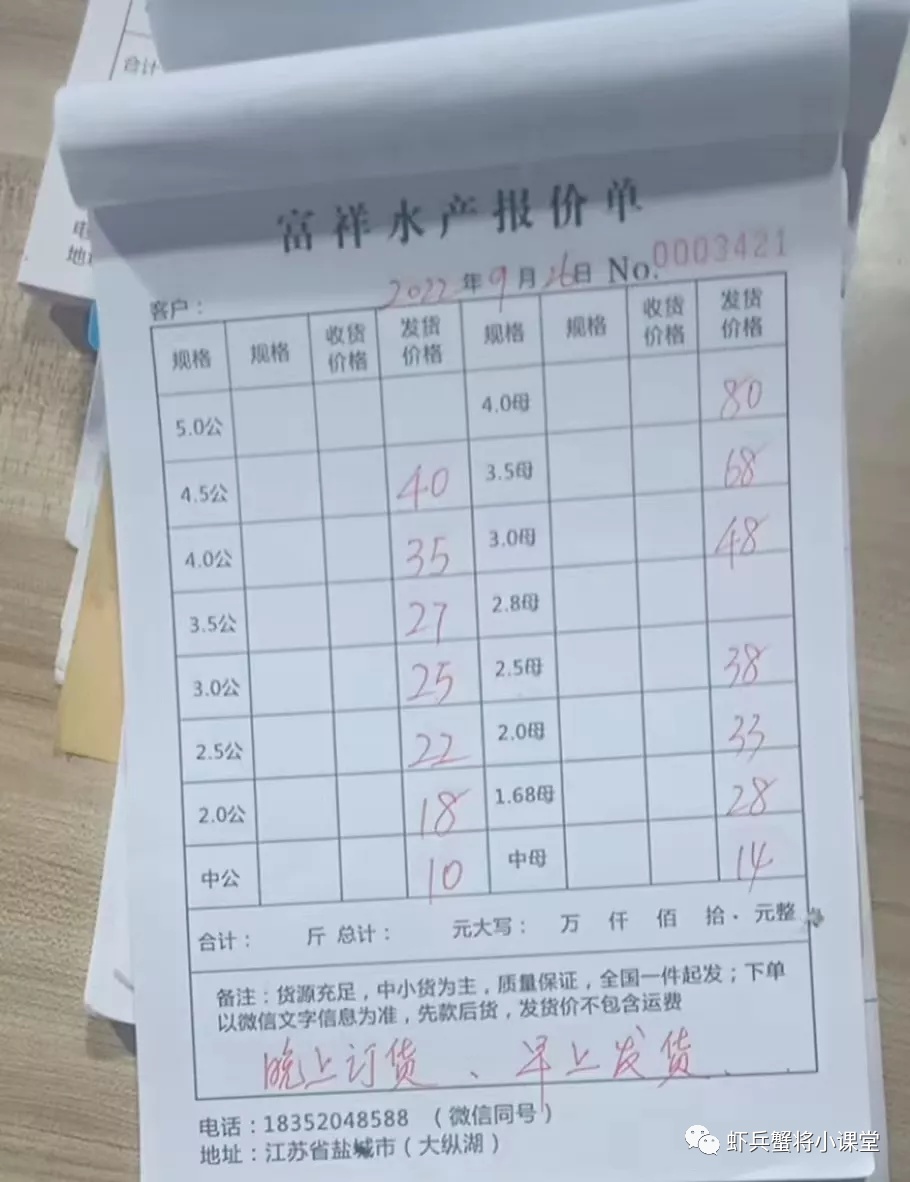 合计
电
地
富祥水产报价单
客户： 2022年9月26日 No.0003421
规格 规格 收货价格 发货价格 规格 规格 收货价格 发货价格
5.0公 4.0母 80
4.5公 40 3.5母 68
4.0公 35 3.0母 48
3.5公 27 2.8母
3.0公 25 2.5母 38
2.5公 22 2.0母 33
2.0公 18 1.68母 28
中公 10 中母 14
合计： 斤 总计： 元大写： 万 仟 佰 拾. 元整
备注：货源充足，中小货为主，质量保证，全国一件起发；下单
以微信文字信息为准，先款后货，发货价不包含运费
晚上订货、早上发货
电话：18352048588 （微信同号）
地址：江苏省盐城市（大纵湖）
虾兵蟹将小课堂